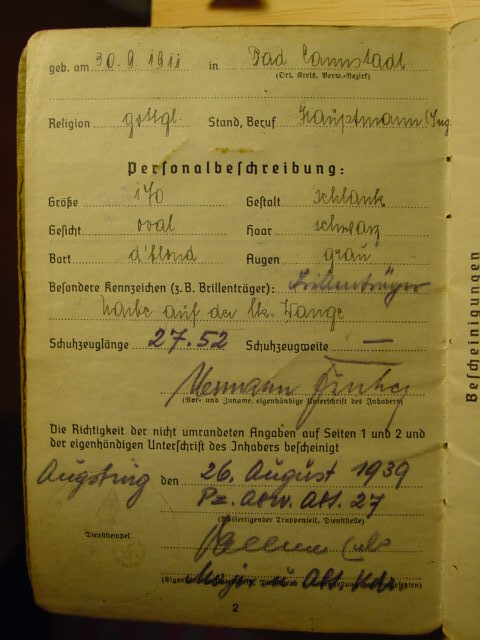 geb. am 30.9.1911 in Bad Cannstadt
(Ort, Kreis, Verw.-Bezirk)
Religion gottgl. Stand, Beruf Hauptmann (Ing.
Personalbeschreibung:
Größe 170 Gestalt schlank
Gesicht oval Haar schwarz
Bart d'blond Augen grau
Besondere Kennzeichen (z.B. Brillenträger): Brillenträger
Narbe auf der lk. Wange
Schuhzeuglänge 27.52 Schuhzeugweite —
Hermann
(Vor- und Zuname, eigenhändige Unterschrift des Inhabers)
Die Richtigkeit der nicht umrandeten Angaben auf Seiten 1 und 2 und
der eigenhändigen Unterschrift des Inhabers bescheinigt
Augsburg den 26. August 1939
Pz. Abw. Abt. 27
(Ausfertigender Truppenteil, Dienststelle)
Dienststempel
Major u. Abt. Kdr.
2
Bescheinigungen